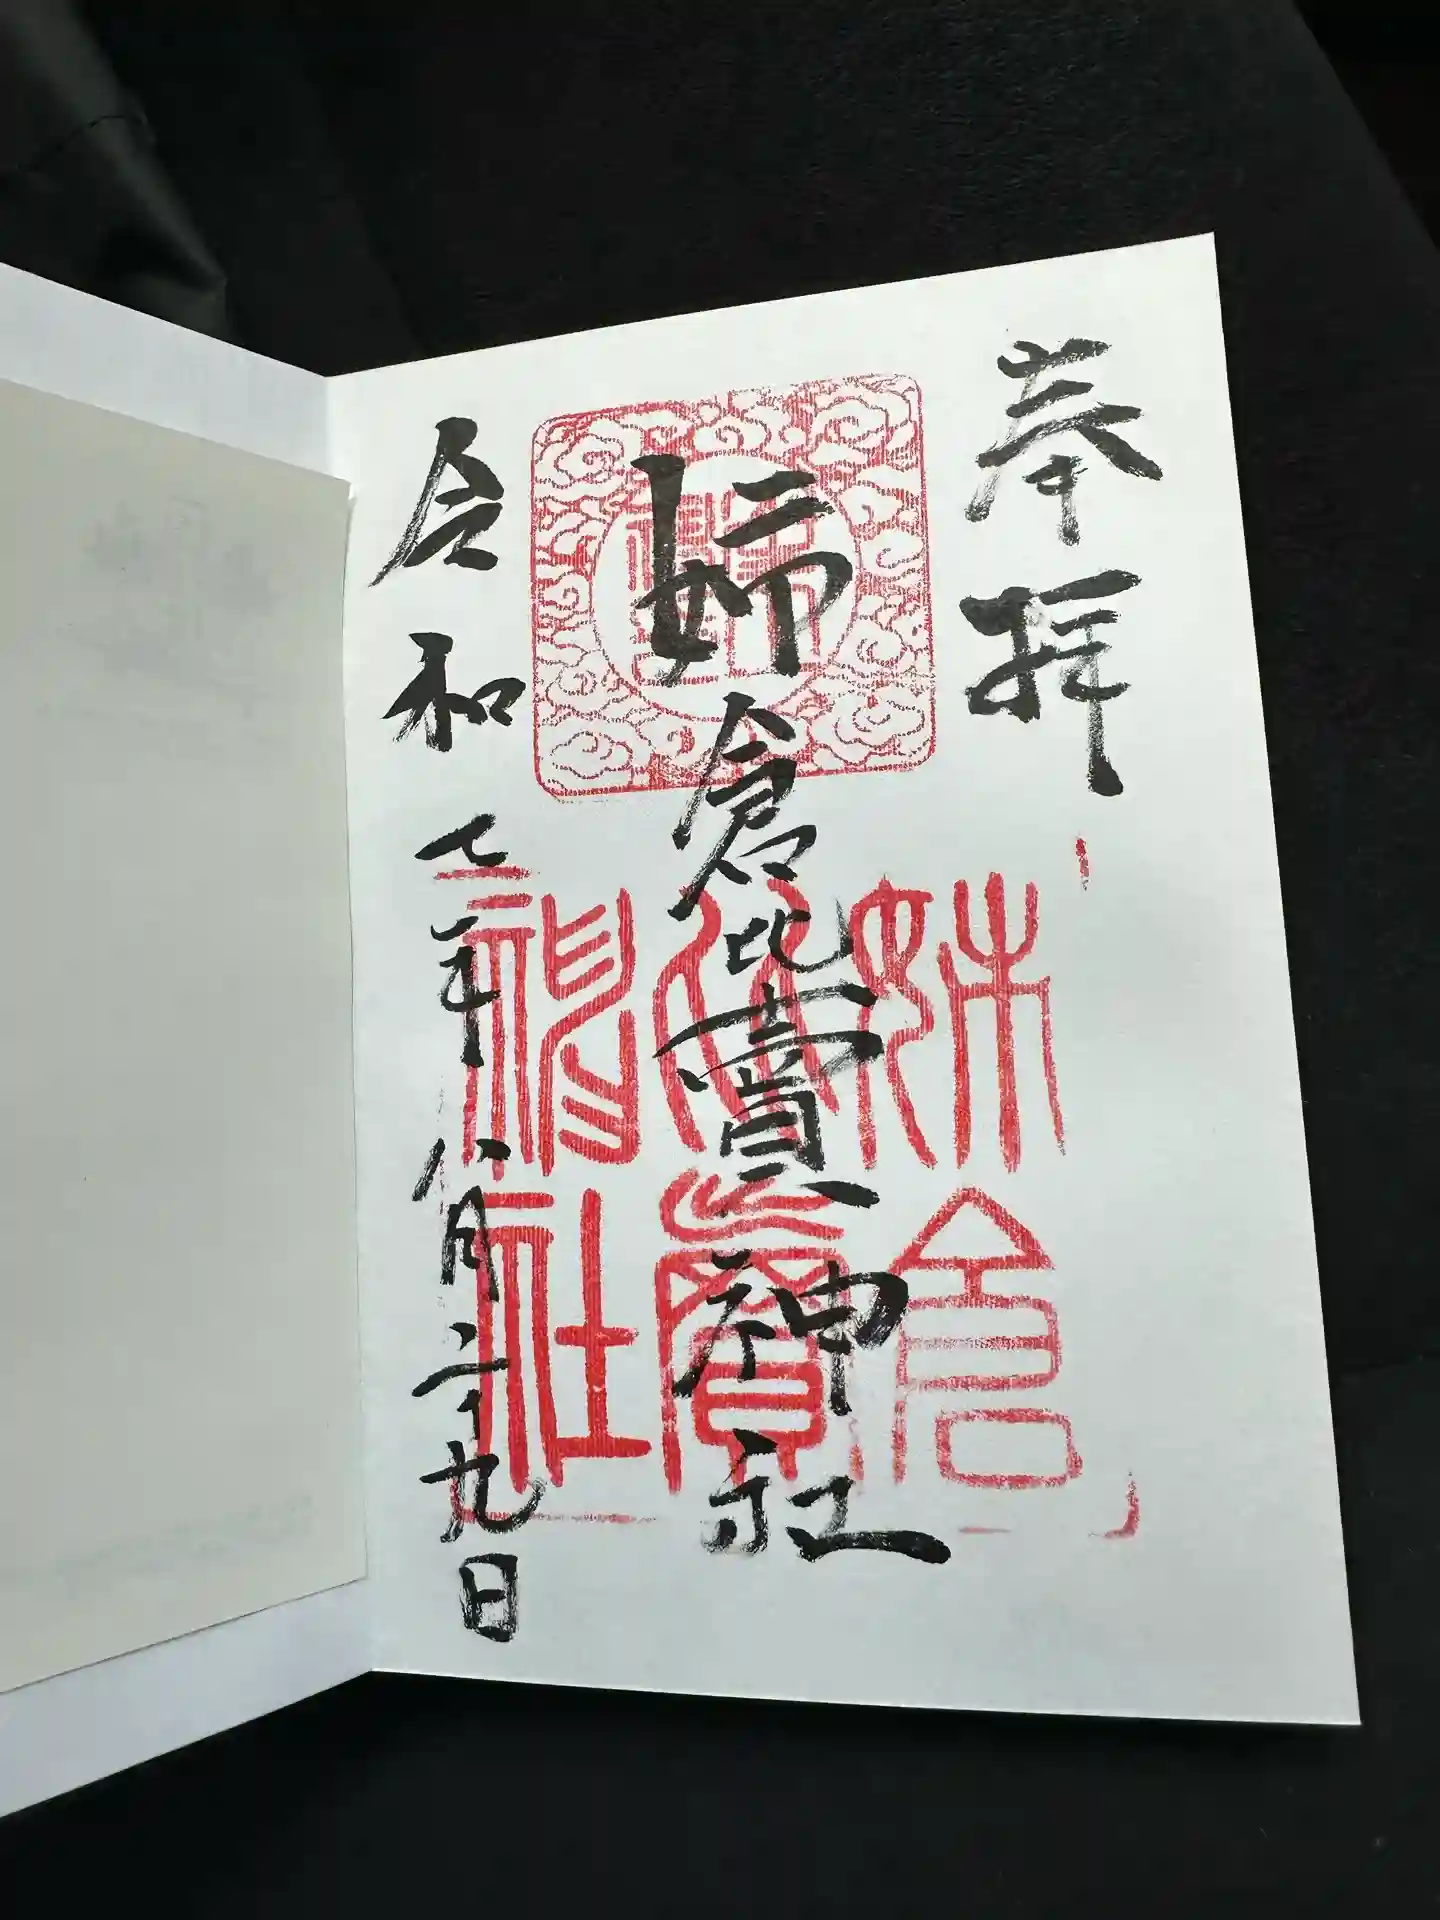 奉拝
姉倉比賣神社
姉倉比賣神社
令和七年八月二十九日